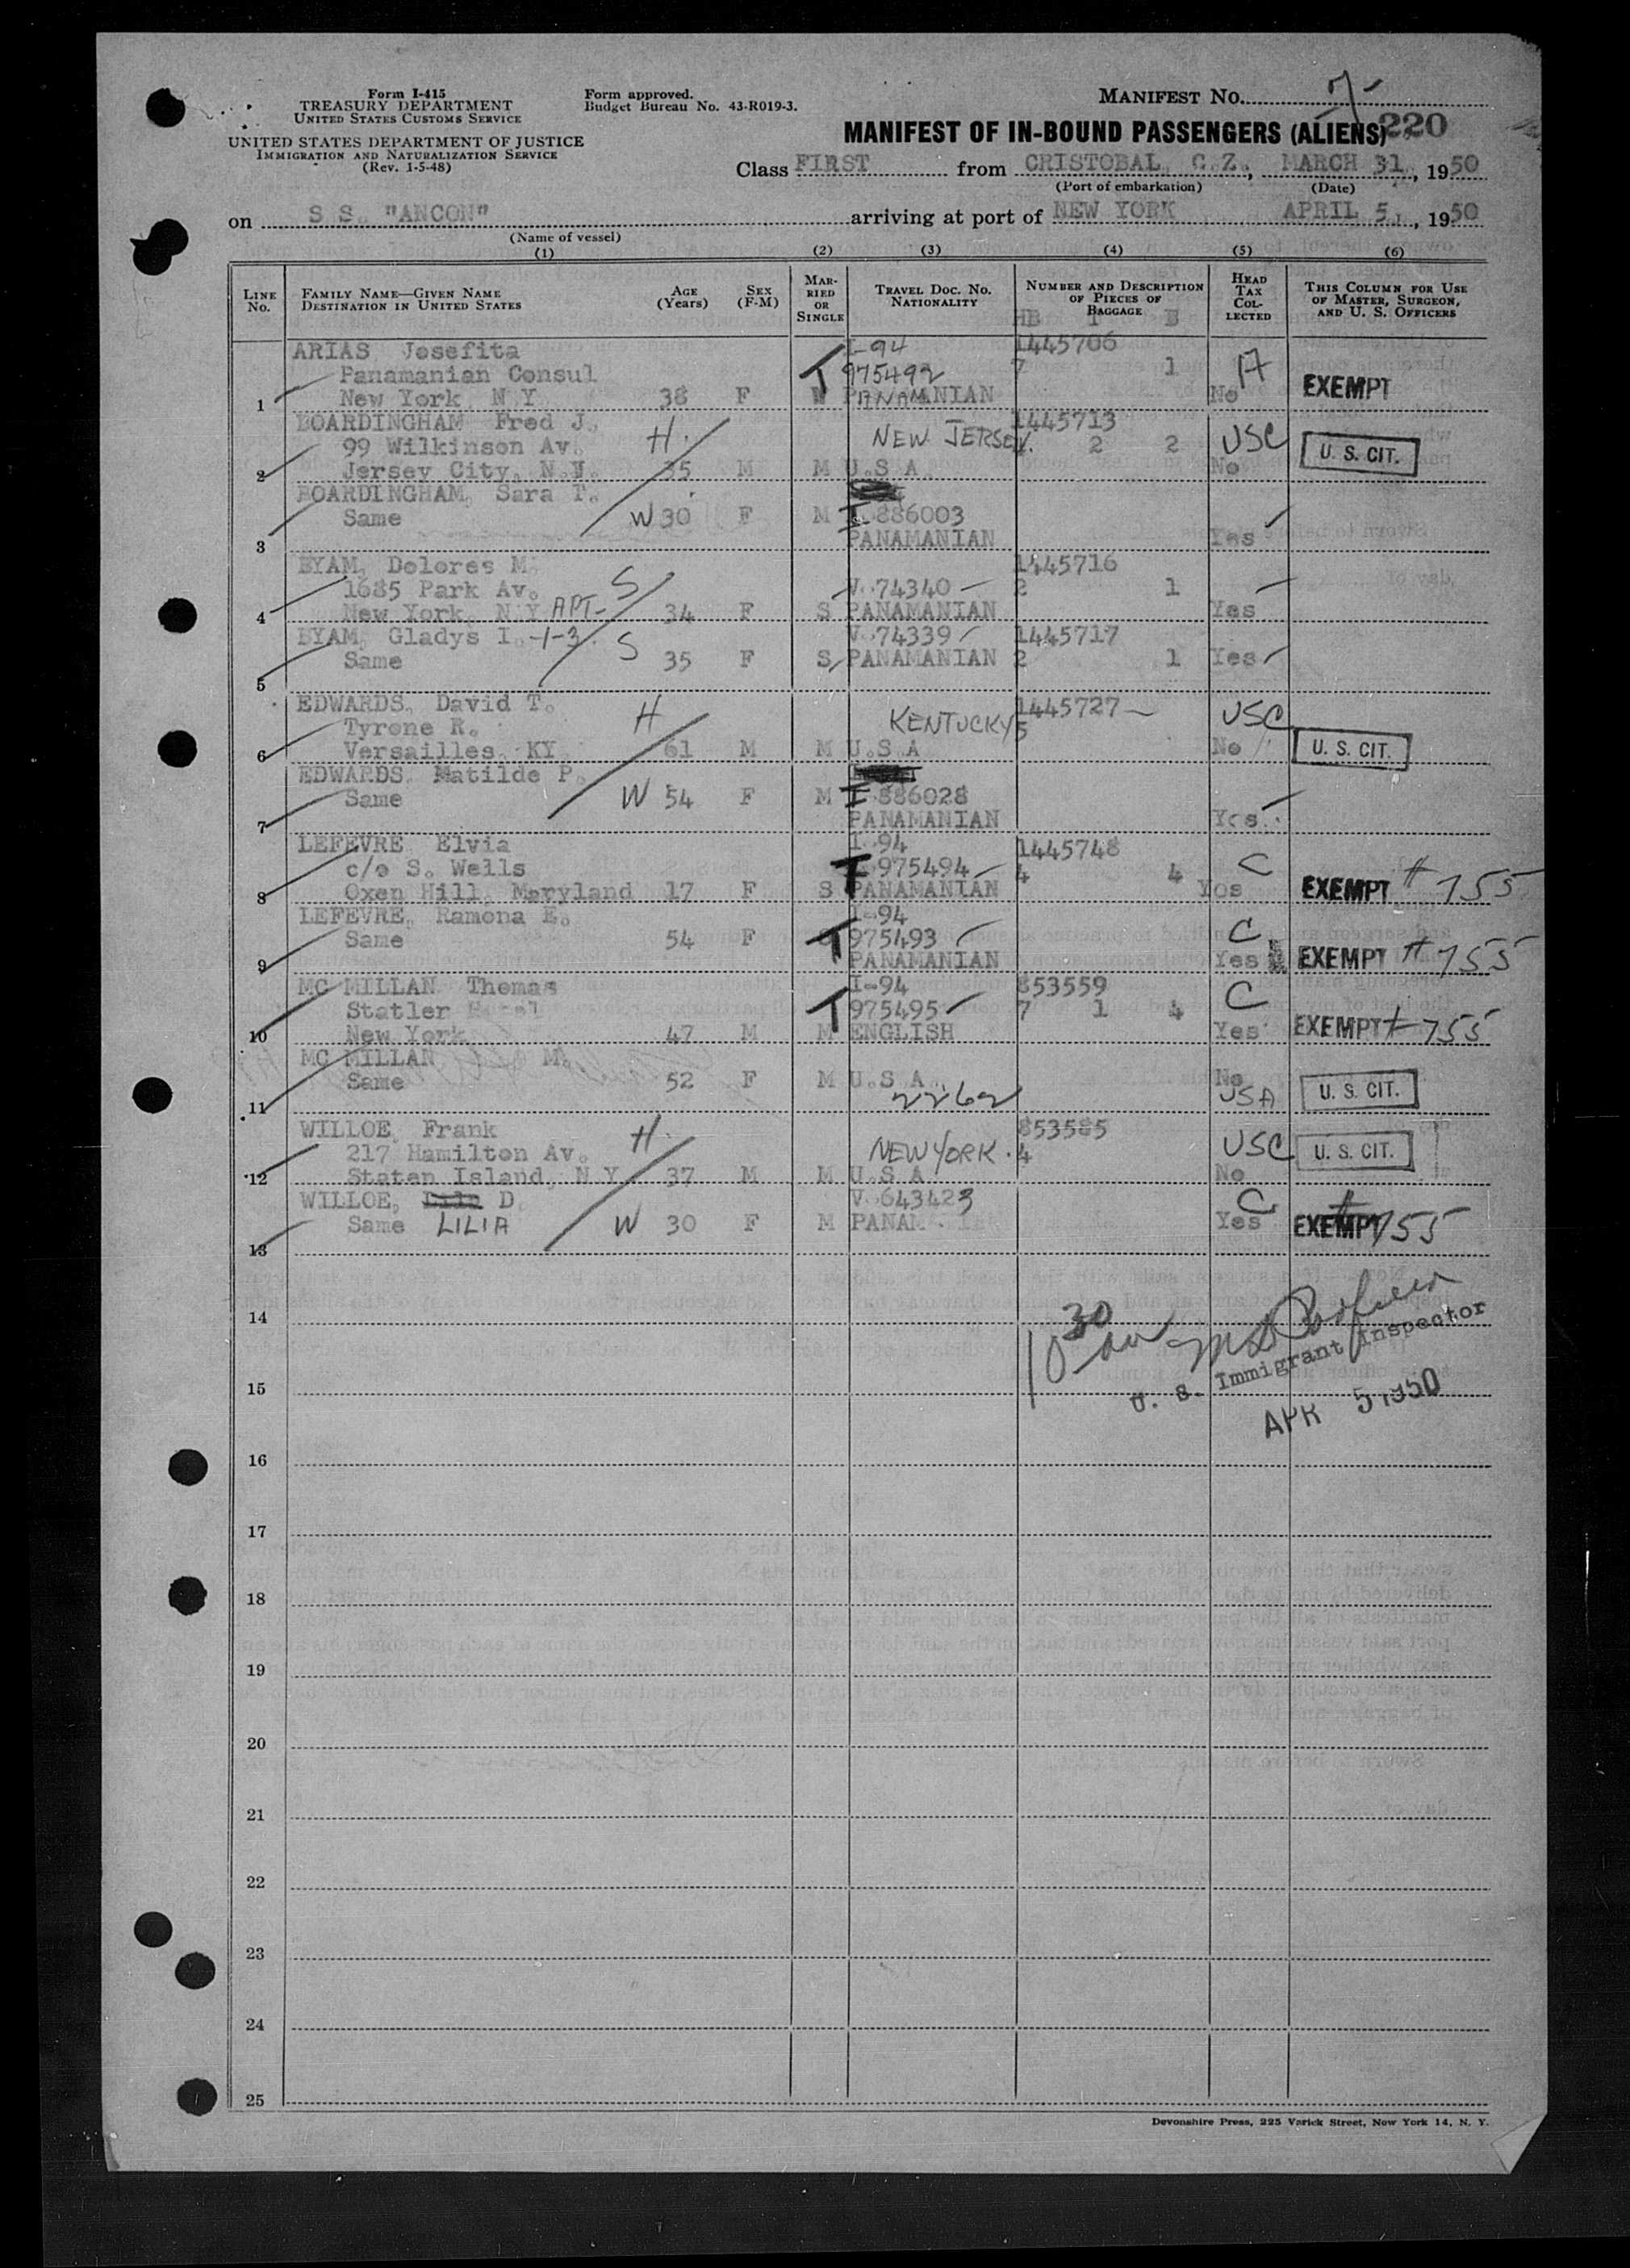 Form I-415
TREASURY DEPARTMENT
UNITED STATES CUSTOMS SERVICE
UNITED STATES DEPARTMENT OF JUSTICE
IMMIGRATION AND NATURALIZATION SERVICE
(Rev. 1-5-48)
Form approved.
Budget Bureau No. 43-R019-3.
MANIFEST No. 7
MANIFEST OF IN-BOUND PASSENGERS (ALIENS) 220
Class FIRST from CRISTOBAL, C.Z., MARCH 31, 1950
(Port of embarkation) (Date)
on S S. "ANCON" arriving at port of NEW YORK APRIL 5, 1950
(Name of vessel)
(1) (2) (3) (4) (5) (6)
LINE No. FAMILY NAME—GIVEN NAME DESTINATION IN UNITED STATES AGE (Years) SEX (F-M) MARRIED OR SINGLE TRAVEL DOC. NO. NATIONALITY NUMBER AND DESCRIPTION OF PIECES OF BAGGAGE HEAD TAX COLLECTED THIS COLUMN FOR USE OF MASTER, SURGEON, AND U. S. OFFICERS
HB T B
ARIAS Josefita I-94 1445706
Panamanian Consul T 975492 7 1 A
1 New York, N.Y. 38 F PANAMANIAN No EXEMPT
BOARDINGHAM Fred J. H. 1445713
99 Wilkinson Av. NEW JERSEY. 2 2 USC U. S. CIT.
2 Jersey City, N.J. 35 M M U.S.A. No
BOARDINGHAM, Sara T.
Same W 30 F M I 886003
3 PANAMANIAN Yes
BYAM, Dolores M. S 1445716
1685 Park Av. V 74340 2 1
4 New York, N.Y. APT- 34 F S PANAMANIAN Yes
BYAM, Gladys I. 1-3. S V 74339 1445717
Same 35 F S PANAMANIAN 2 1 Yes
5
EDWARDS, David T. H 1445727
Tyrone R. KENTUCKY 5 USC
6 Versailles, KY 61 M M U.S.A No U. S. CIT.
EDWARDS, Matilde P.
Same W 54 F M I 886028
7 PANAMANIAN Yes
LEFEVRE Elvia I-94 1445748
c/o S. Wells T 975494 4 4 C
8 Oxen Hill, Maryland 17 F S PANAMANIAN Yes EXEMPT # 155
LEFEVRE, Ramona E. I-94
Same 54 F T 975493 C
9 PANAMANIAN Yes EXEMPT # 155
MC MILLAN Thomas I-94 853559
Statler Hotel T 975495 7 1 4 C
10 New York 47 M M ENGLISH Yes EXEMPT # 155
MC MILLAN M.
Same 52 F M U.S.A. No U. S. CIT.
11 2262 USA
WILLOE, Frank H. 853585
217 Hamilton Av. NEW YORK. 4 USC U. S. CIT.
12 Staten Island, N.Y. 37 M M U.S.A. No
WILLOE, D. V 643423 C
Same LILIA W 30 F M PANAM Yes EXEMPT # 155
13
14
10 30 am
U. S. Immigrant Inspector
15
APR 5 1950
16
17
18
19
20
21
22
23
24
25
Devonshire Press, 225 Varick Street, New York 14, N. Y.